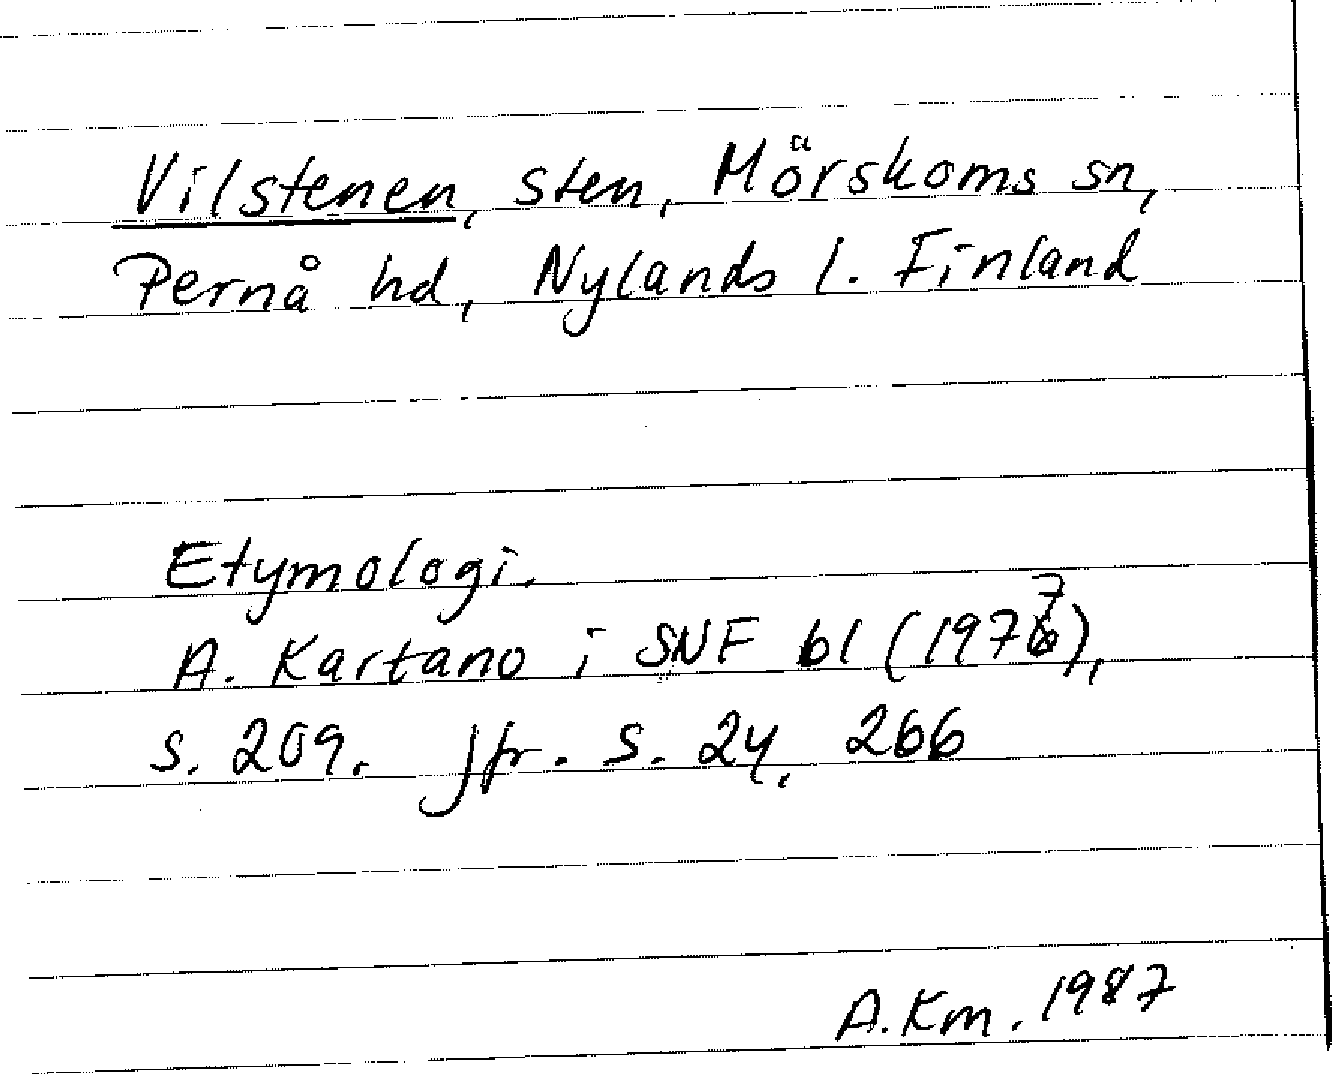 Vilstenen, sten, Mörskoms sn,
Pernå hd, Nylands l. Finland
Etymologi.
A. Kartano i SNF 61 (1977),
s. 209. Jfr. s. 24, 266
A. Km. 1987